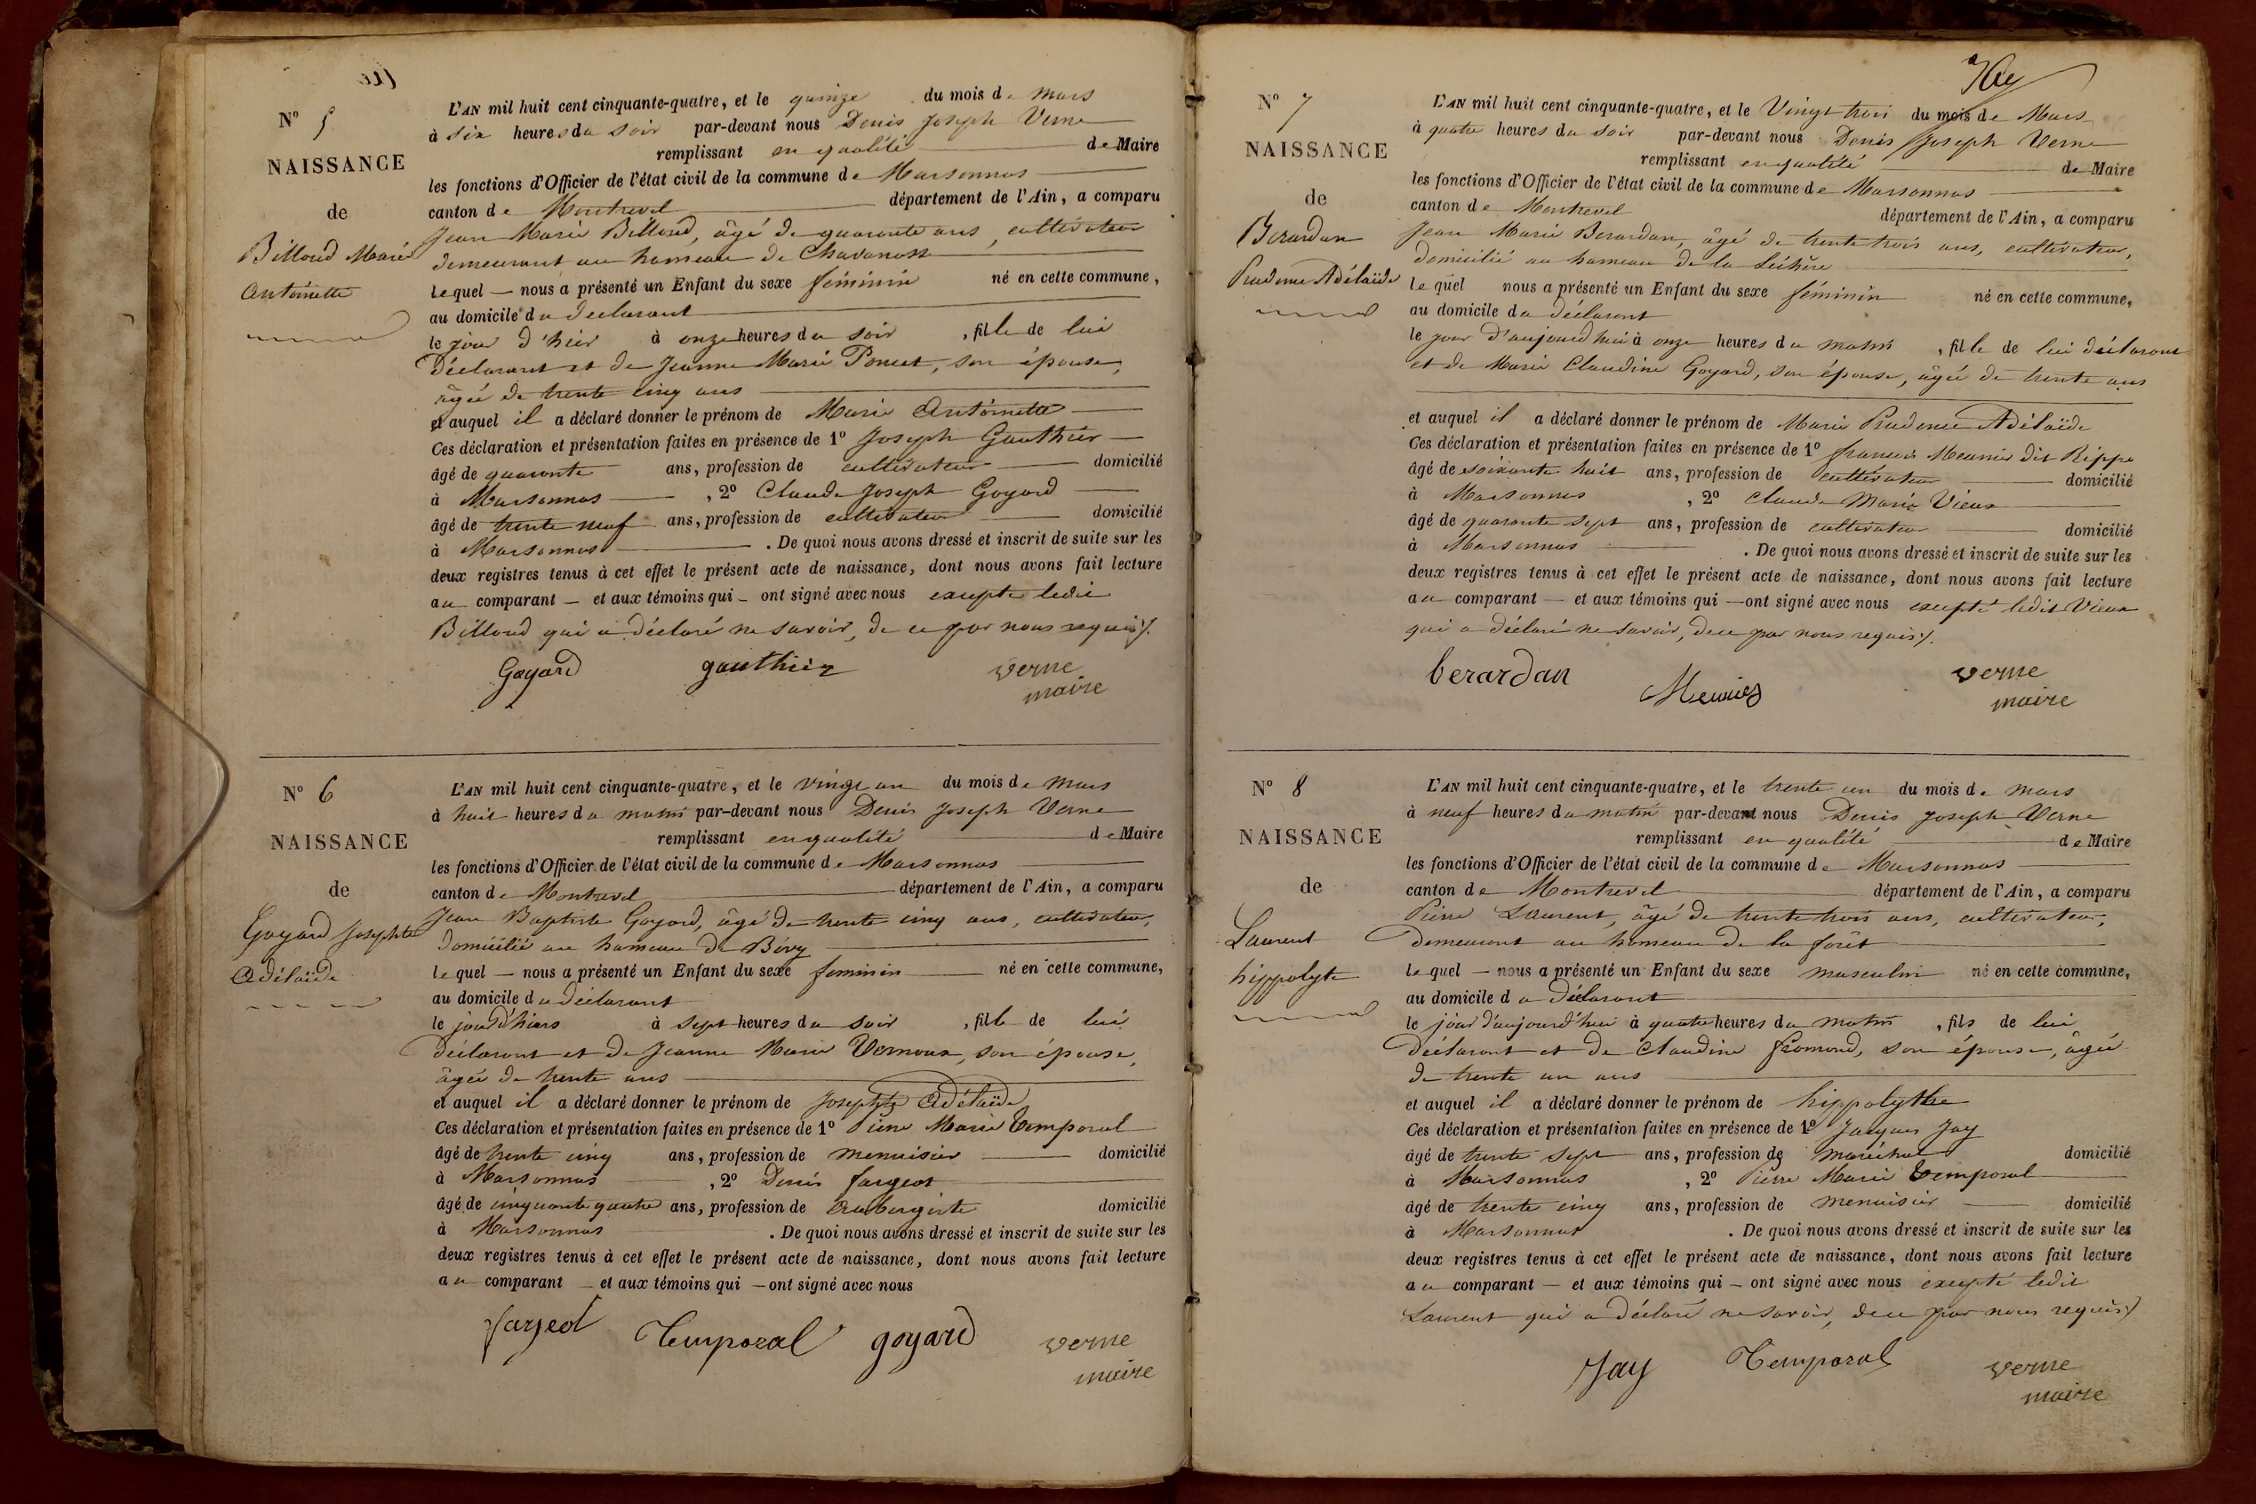 N° 5
NAISSANCE
de
Billoud Marie
Antoinette
L'AN mil huit cent cinquante-quatre, et le quinze du mois de Mars
à six heures du soir par-devant nous Denis Joseph Verne
remplissant en qualité de Maire
les fonctions d'Officier de l'état civil de la commune de Marsonnas
canton de Montrevel département de l'Ain, a comparu
Jean Marie Billoud, âgé de quarante ans, cultivateur
demeurant au hameau de Chavanosse
lequel — nous a présenté un Enfant du sexe féminin né en cette commune,
au domicile du déclarant
le jour d'hier à onze heures du soir, fille de lui
déclarant et de Jeanne Marie Poncet, son épouse,
âgée de trente cinq ans
et auquel il a déclaré donner le prénom de Marie Antoinette
Ces déclaration et présentation faites en présence de 1° Joseph Gauthier
âgé de quarante ans, profession de cultivateur domicilié
à Marsonnas, 2° Claude Joseph Goyard
âgé de trente neuf ans, profession de cultivateur domicilié
à Marsonnas. De quoi nous avons dressé et inscrit de suite sur les
deux registres tenus à cet effet le présent acte de naissance, dont nous avons fait lecture
au comparant — et aux témoins qui — ont signé avec nous excepté ledit
Billoud qui a déclaré ne savoir, de ce par nous requis /.
Goyard gauthier verne
maire
N° 6
NAISSANCE
de
Goyard Josephte
Adélaïde
L'AN mil huit cent cinquante-quatre, et le vingt un du mois de Mars
à huit heures du matin par-devant nous Denis Joseph Verne
remplissant en qualité de Maire
les fonctions d'Officier de l'état civil de la commune de Marsonnas
canton de Montrevel département de l'Ain, a comparu
Jean Baptiste Goyard, âgé de trente cinq ans, cultivateur,
domicilié au hameau de Bovy
lequel — nous a présenté un Enfant du sexe feminin né en cette commune,
au domicile du déclarant
le jour d'hiers à sept heures du soir, fille de lui
déclarant et de Jeanne Marie Vernoux, son épouse,
âgée de trente ans
et auquel il a déclaré donner le prénom de Josephte Adélaïde
Ces déclaration et présentation faites en présence de 1° Pierre Marie Temporal
âgé de trente cinq ans, profession de menuisier domicilié
à Marsonnas, 2° Denis fargeot
âgé de cinquante quatre ans, profession de Aubergiste domicilié
à Marsonnas. De quoi nous avons dressé et inscrit de suite sur les
deux registres tenus à cet effet le présent acte de naissance, dont nous avons fait lecture
au comparant — et aux témoins qui — ont signé avec nous
farjeot Temporal goyard verne
maire
N° 7
NAISSANCE
de
Berardan
Prudence Adélaïde
L'AN mil huit cent cinquante-quatre, et le Vingt trois du mois de Mars
à quatre heures du soir par-devant nous Denis Joseph Verne
remplissant en qualité de Maire
les fonctions d'Officier de l'état civil de la commune de Marsonnas
canton de Montrevel département de l'Ain, a comparu
Jean Marie Berardan, âgé de trente trois ans, cultivateur,
domicilié au hameau de la
lequel nous a présenté un Enfant du sexe féminin né en cette commune,
au domicile du déclarant
le jour d'aujourd'hui à onze heures du matin, fille de lui déclarant
et de Marie Claudine Goyard, son épouse, âgée de trente ans
et auquel il a déclaré donner le prénom de Marie Prudence Adélaïde
Ces déclaration et présentation faites en présence de 1° francois Meunier dit Rippe
âgé de soixante huit ans, profession de cultivateur domicilié
à Marsonnas, 2° Claude Marie Vieux
âgé de quarante sept ans, profession de cultivateur domicilié
à Marsonnas. De quoi nous avons dressé et inscrit de suite sur les
deux registres tenus à cet effet le présent acte de naissance, dont nous avons fait lecture
au comparant — et aux témoins qui — ont signé avec nous excepté ledit Vieux
qui a déclaré ne savoir, de ce par nous requis /.
berardan Meunier verne
maire
N° 8
NAISSANCE
de
Laurent
hippolyte
L'AN mil huit cent cinquante-quatre, et le trente un du mois de Mars
à neuf heures du matin par-devant nous Denis Joseph Verne
remplissant en qualité de Maire
les fonctions d'Officier de l'état civil de la commune de Marsonnas
canton de Montrevel département de l'Ain, a comparu
Pierre Laurent, âgé de trente trois ans, cultivateur,
demeurant au hameau de la forêt
lequel — nous a présenté un Enfant du sexe masculin né en cette commune,
au domicile du déclarant
le jour d'aujourd'hui à quatre heures du matin, fils de lui
déclarant et de Claudine fromond, son épouse, âgée
de trente un ans
et auquel il a déclaré donner le prénom de hippolythe
Ces déclaration et présentation faites en présence de 1° Jacques Jay
âgé de trente sept ans, profession de maréchal domicilié
à Marsonnas, 2° Pierre Marie Temporal
âgé de trente cinq ans, profession de menuisier domicilié
à Marsonnas. De quoi nous avons dressé et inscrit de suite sur les
deux registres tenus à cet effet le présent acte de naissance, dont nous avons fait lecture
au comparant — et aux témoins qui — ont signé avec nous excepté ledit
Laurent qui a déclaré ne savoir, de ce par nous requis /
Jay Temporal verne
maire